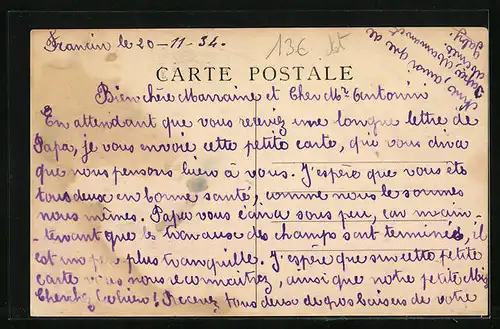 Francin le 20-11-34.
136 lot
CARTE POSTALE
Bien chère Marraine et Cher Mr. Antonin
En attendant que vous receviez une longue lettre de
Papa, je vous envoie cette petite carte, que vous dira
que nous pensons bien à vous. J'espère que vous êtes
tous deux en bonne santé, comme nous le sommes
nous mêmes. Papa vous écrira sous peu, car main-
-tenant que les travaux des champs sont terminés, il
est un peu plus tranquille. J'espère que sur cette petite
carte vous nous reconnaitrez, ainsi que notre petite
Recevez tous deux de gros baisers de votre
ainsi que de
Papa, Maman et de